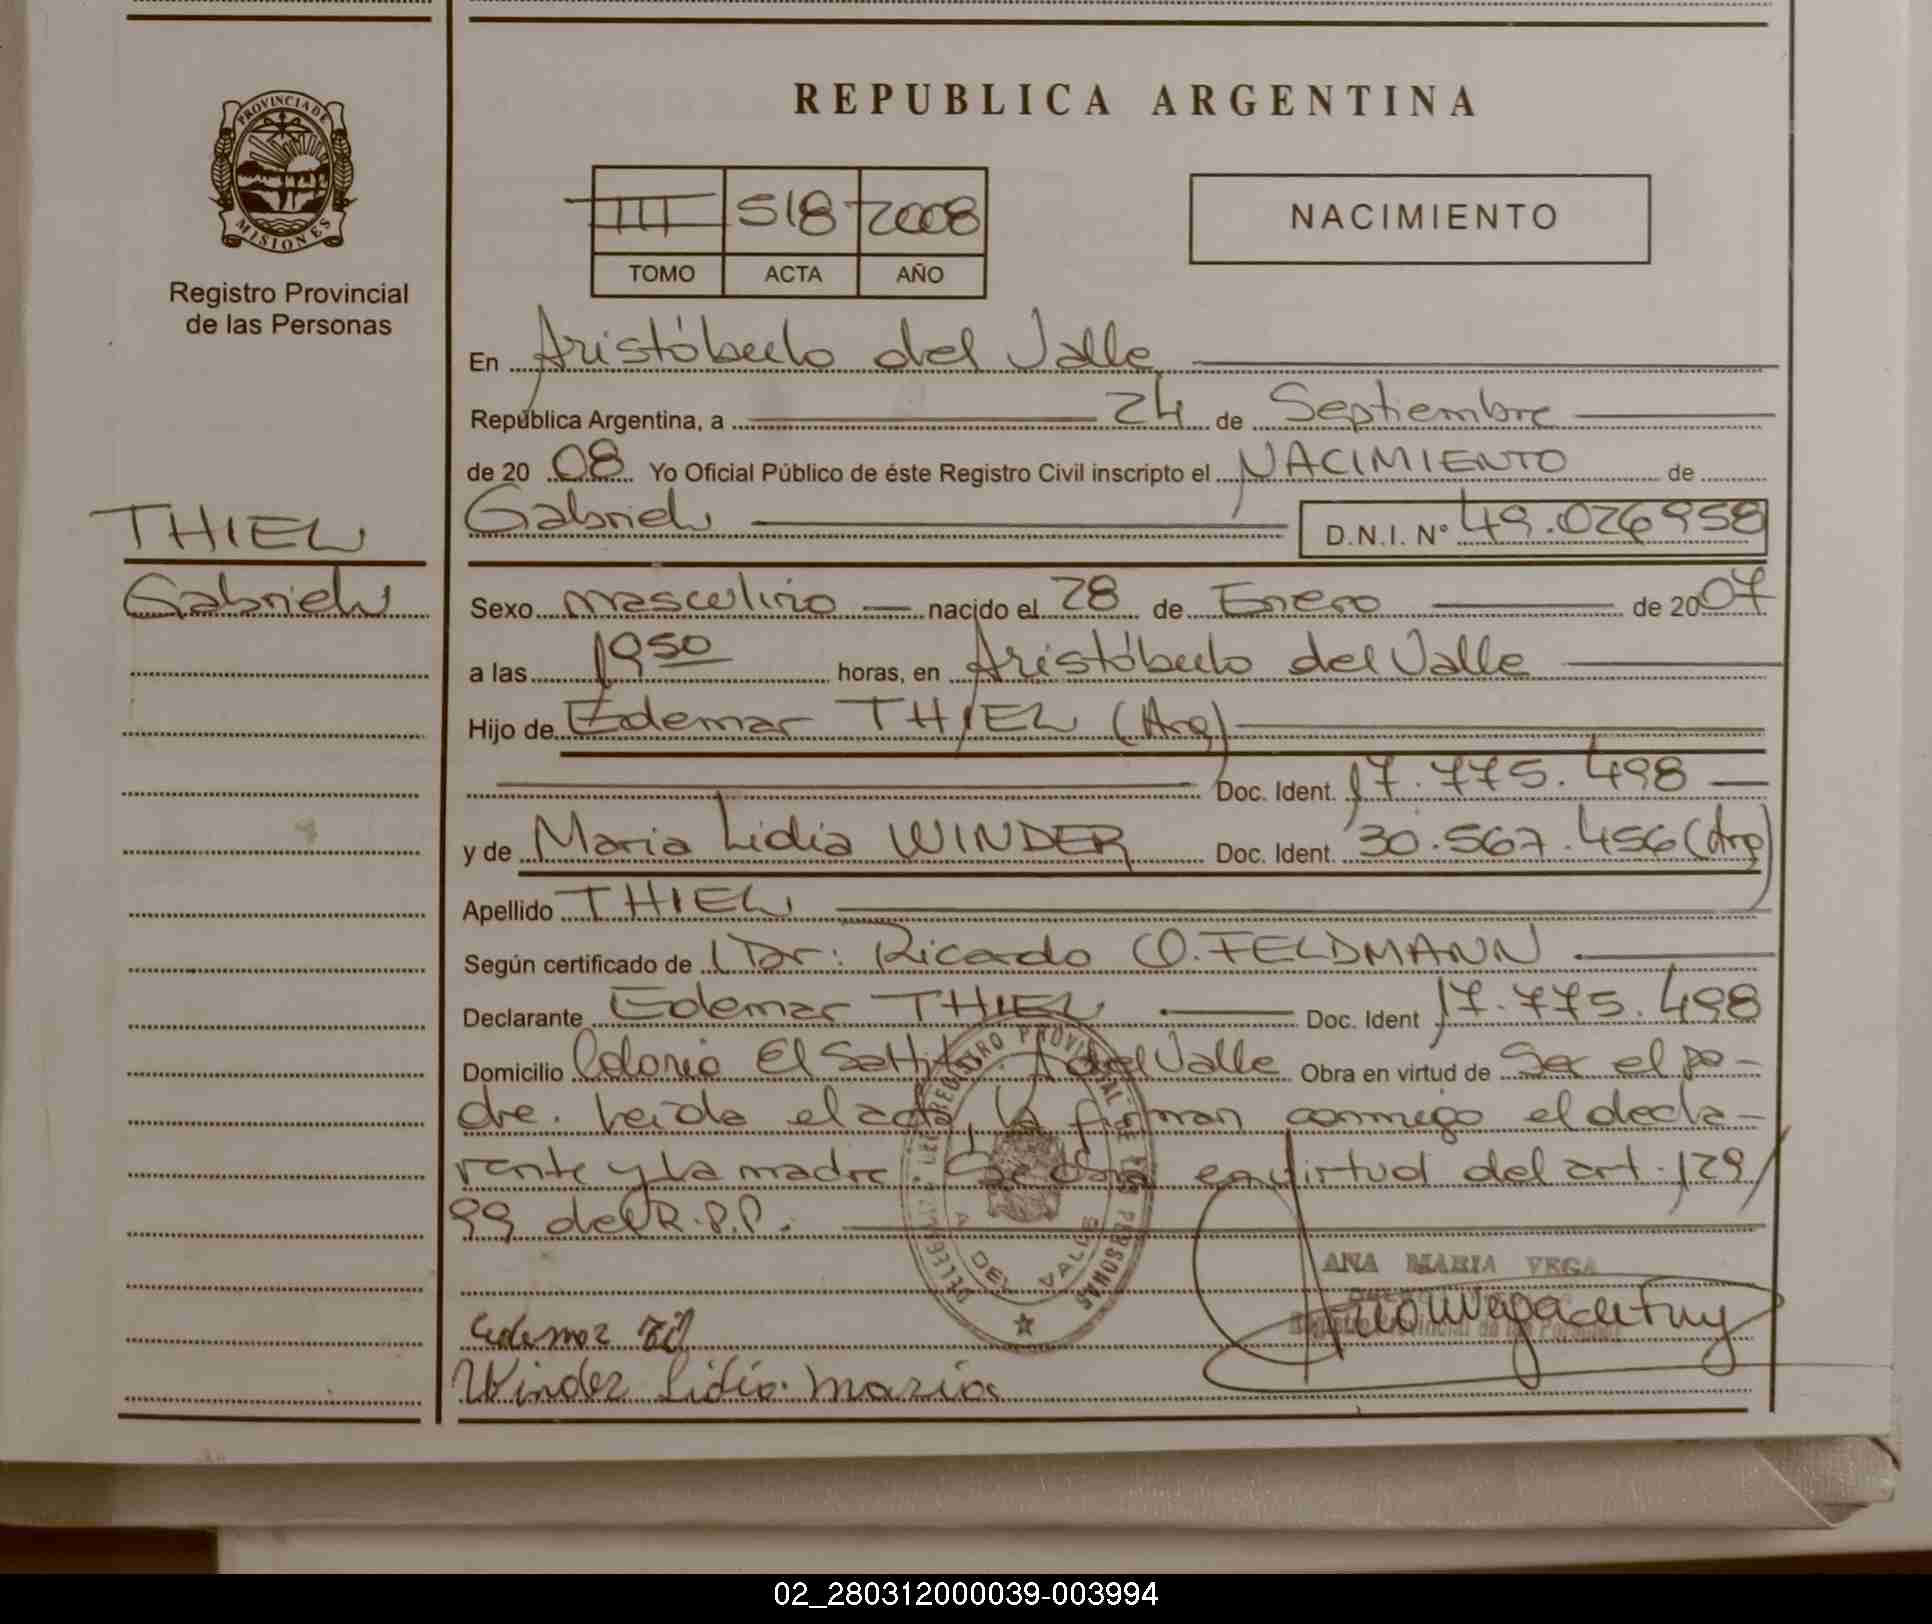 PROVINCIA DE
MISIONES
Registro Provincial
de las Personas
THIEL
Gabriel
REPUBLICA ARGENTINA
III 518 2008
TOMO ACTA AÑO
NACIMIENTO
En Aristóbulo del Valle
República Argentina, a 24 de Septiembre
de 2008 Yo Oficial Público de éste Registro Civil inscripto el NACIMIENTO de
Gabriel D.N.I. N° 49.026958
Sexo masculino nacido el 28 de Enero de 2007
a las 1950 horas, en Aristóbulo del Valle
Hijo de Edemar THIEL (Arg)
Doc. Ident. 17.775.498
y de Maria Lidia WINDER Doc. Ident. 30.567.456 (Arg)
Apellido THIEL
Según certificado de Dr: Ricardo O. FELDMANN
Declarante Edemar THIEL Doc. Ident 17.775.498
Domicilio Colonia El Saltito. A del Valle Obra en virtud de Ser el pa-
dre. Leida el acta, la firman conmigo el decla-
rante y la madre. Se obra en virtud del art. 129/
99 del R.P.P.
REGISTRO PROVINCIAL DE LAS PERSONAS
A DEL VALLE
ANA MARIA VEGA
Winder Lidia Maria
02_280312000039-003994